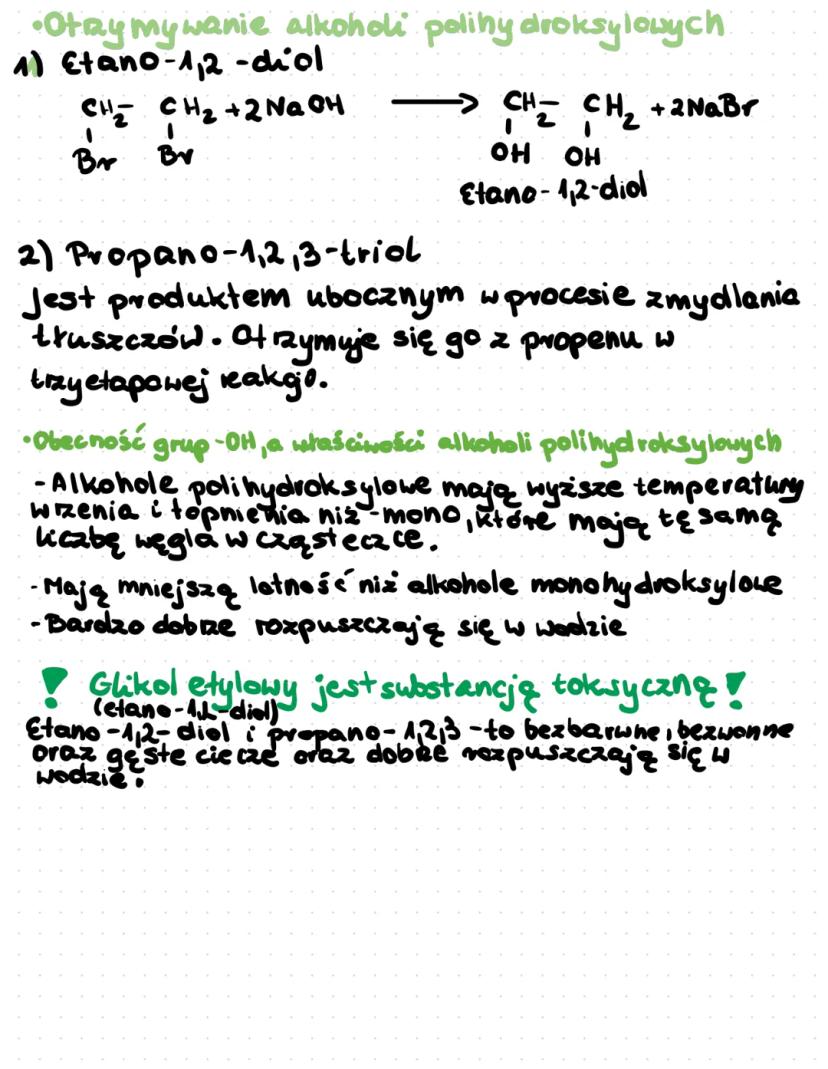 •Otrzymywanie alkoholi polihydroksylowych
1) Etano-1,2-diol
CH2- CH2 + 2NaOH → CH2- CH2 + 2NaBr
Br Br OH OH
Etano-1,2-diol
2) Propano-1,2,3-triol
Jest produktem ubocznym w procesie zmydlania
tłuszczów. Otrzymuje się go z propenu w
trzyetapowej reakcji.
•Obecność grup -OH, a właściwości alkoholi polihydroksylowych
- Alkohole polihydroksylowe mają wyższe temperatury
wrzenia i topnienia niż -mono, które mają tę samą
liczbę węgla w cząsteczce.
- Mają mniejszą lotność niż alkohole monohydroksylowe
- Bardzo dobrze rozpuszczają się w wodzie
! Glikol etylowy jest substancją toksyczną !
(etano-1,2-diol)
Etano-1,2-diol i propano-1,2,3 -to bezbarwne, bezwonne
oraz gęste ciecze oraz dobrze rozpuszczają się w
wodzie.